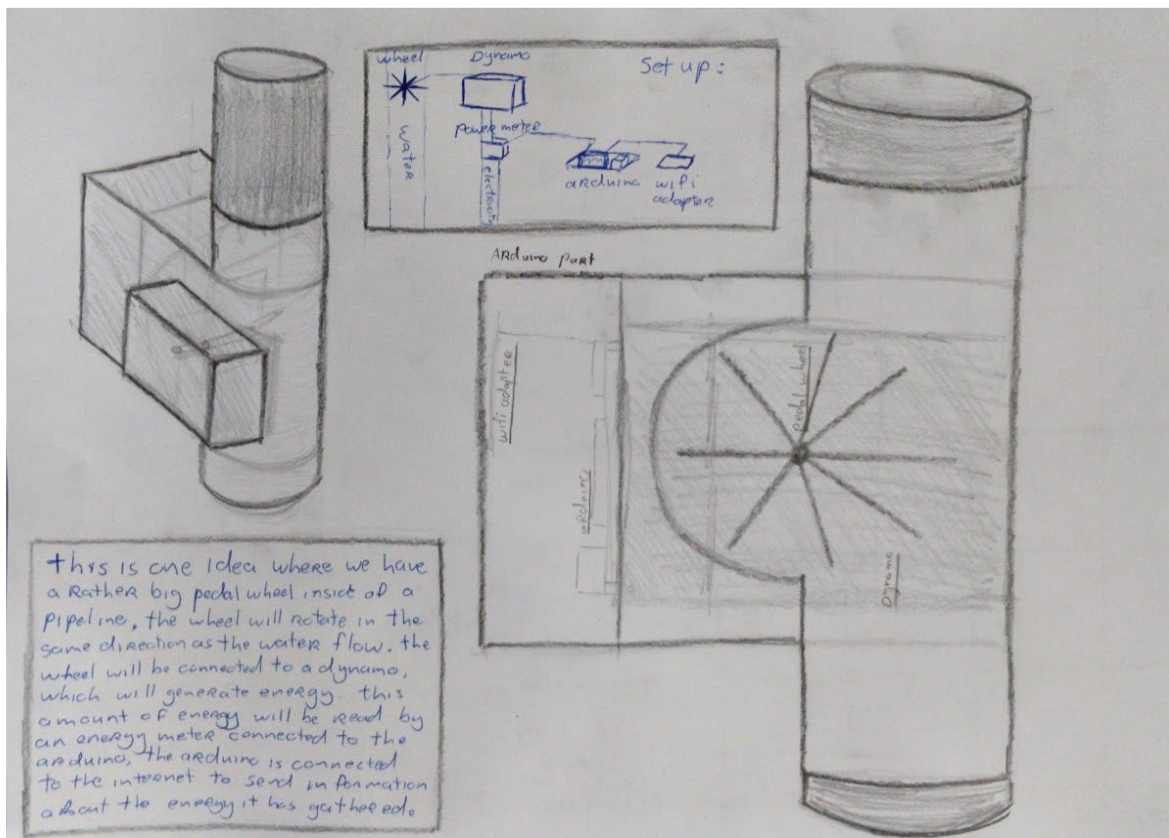 wheel
Dynamo
Set up :
water
power meter
electricity
arduino
wifi
adapter
ARduino part
wifi adapter
arduino
pedal wheel
Dynamo
this is one idea where we have
a Rather big pedal wheel inside of a
pipeline, the wheel will rotate in the
same direction as the water flow. the
wheel will be connected to a dynamo,
which will generate energy. this
amount of energy will be read by
an energy meter connected to the
arduino, the arduino is connected
to the internet to send information
about the energy it has gathered.